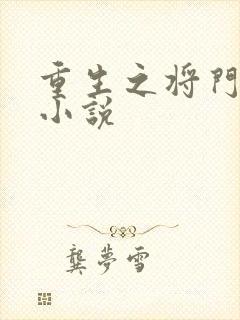 重生之将門
小説
龔夢雪